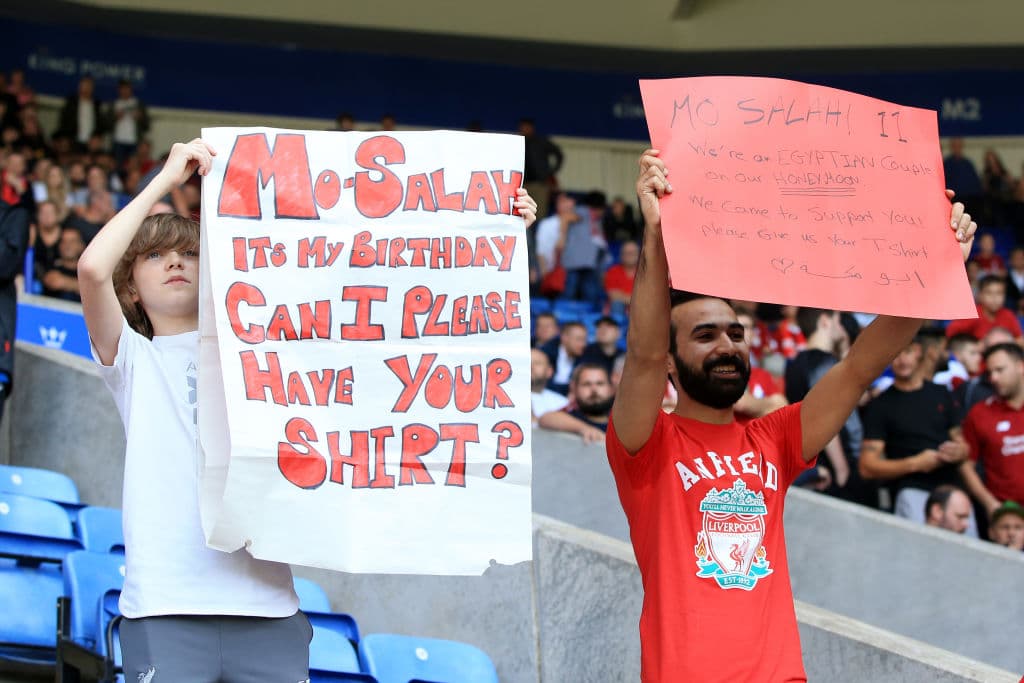 KING POWER
M2
MO-SALAH
ITS MY BIRTHDAY
CAN I PLEASE
HAVE YOUR
SHIRT?
MO SALAH! 11
We're an EGYPTIAN Couple
on our HONEYMOON
We came to Support You!
please Give us Your T Shirt
ابو مكه
ANFIELD
YOU'LL NEVER WALK ALONE
LIVERPOOL
FOOTBALL CLUB
EST·1892